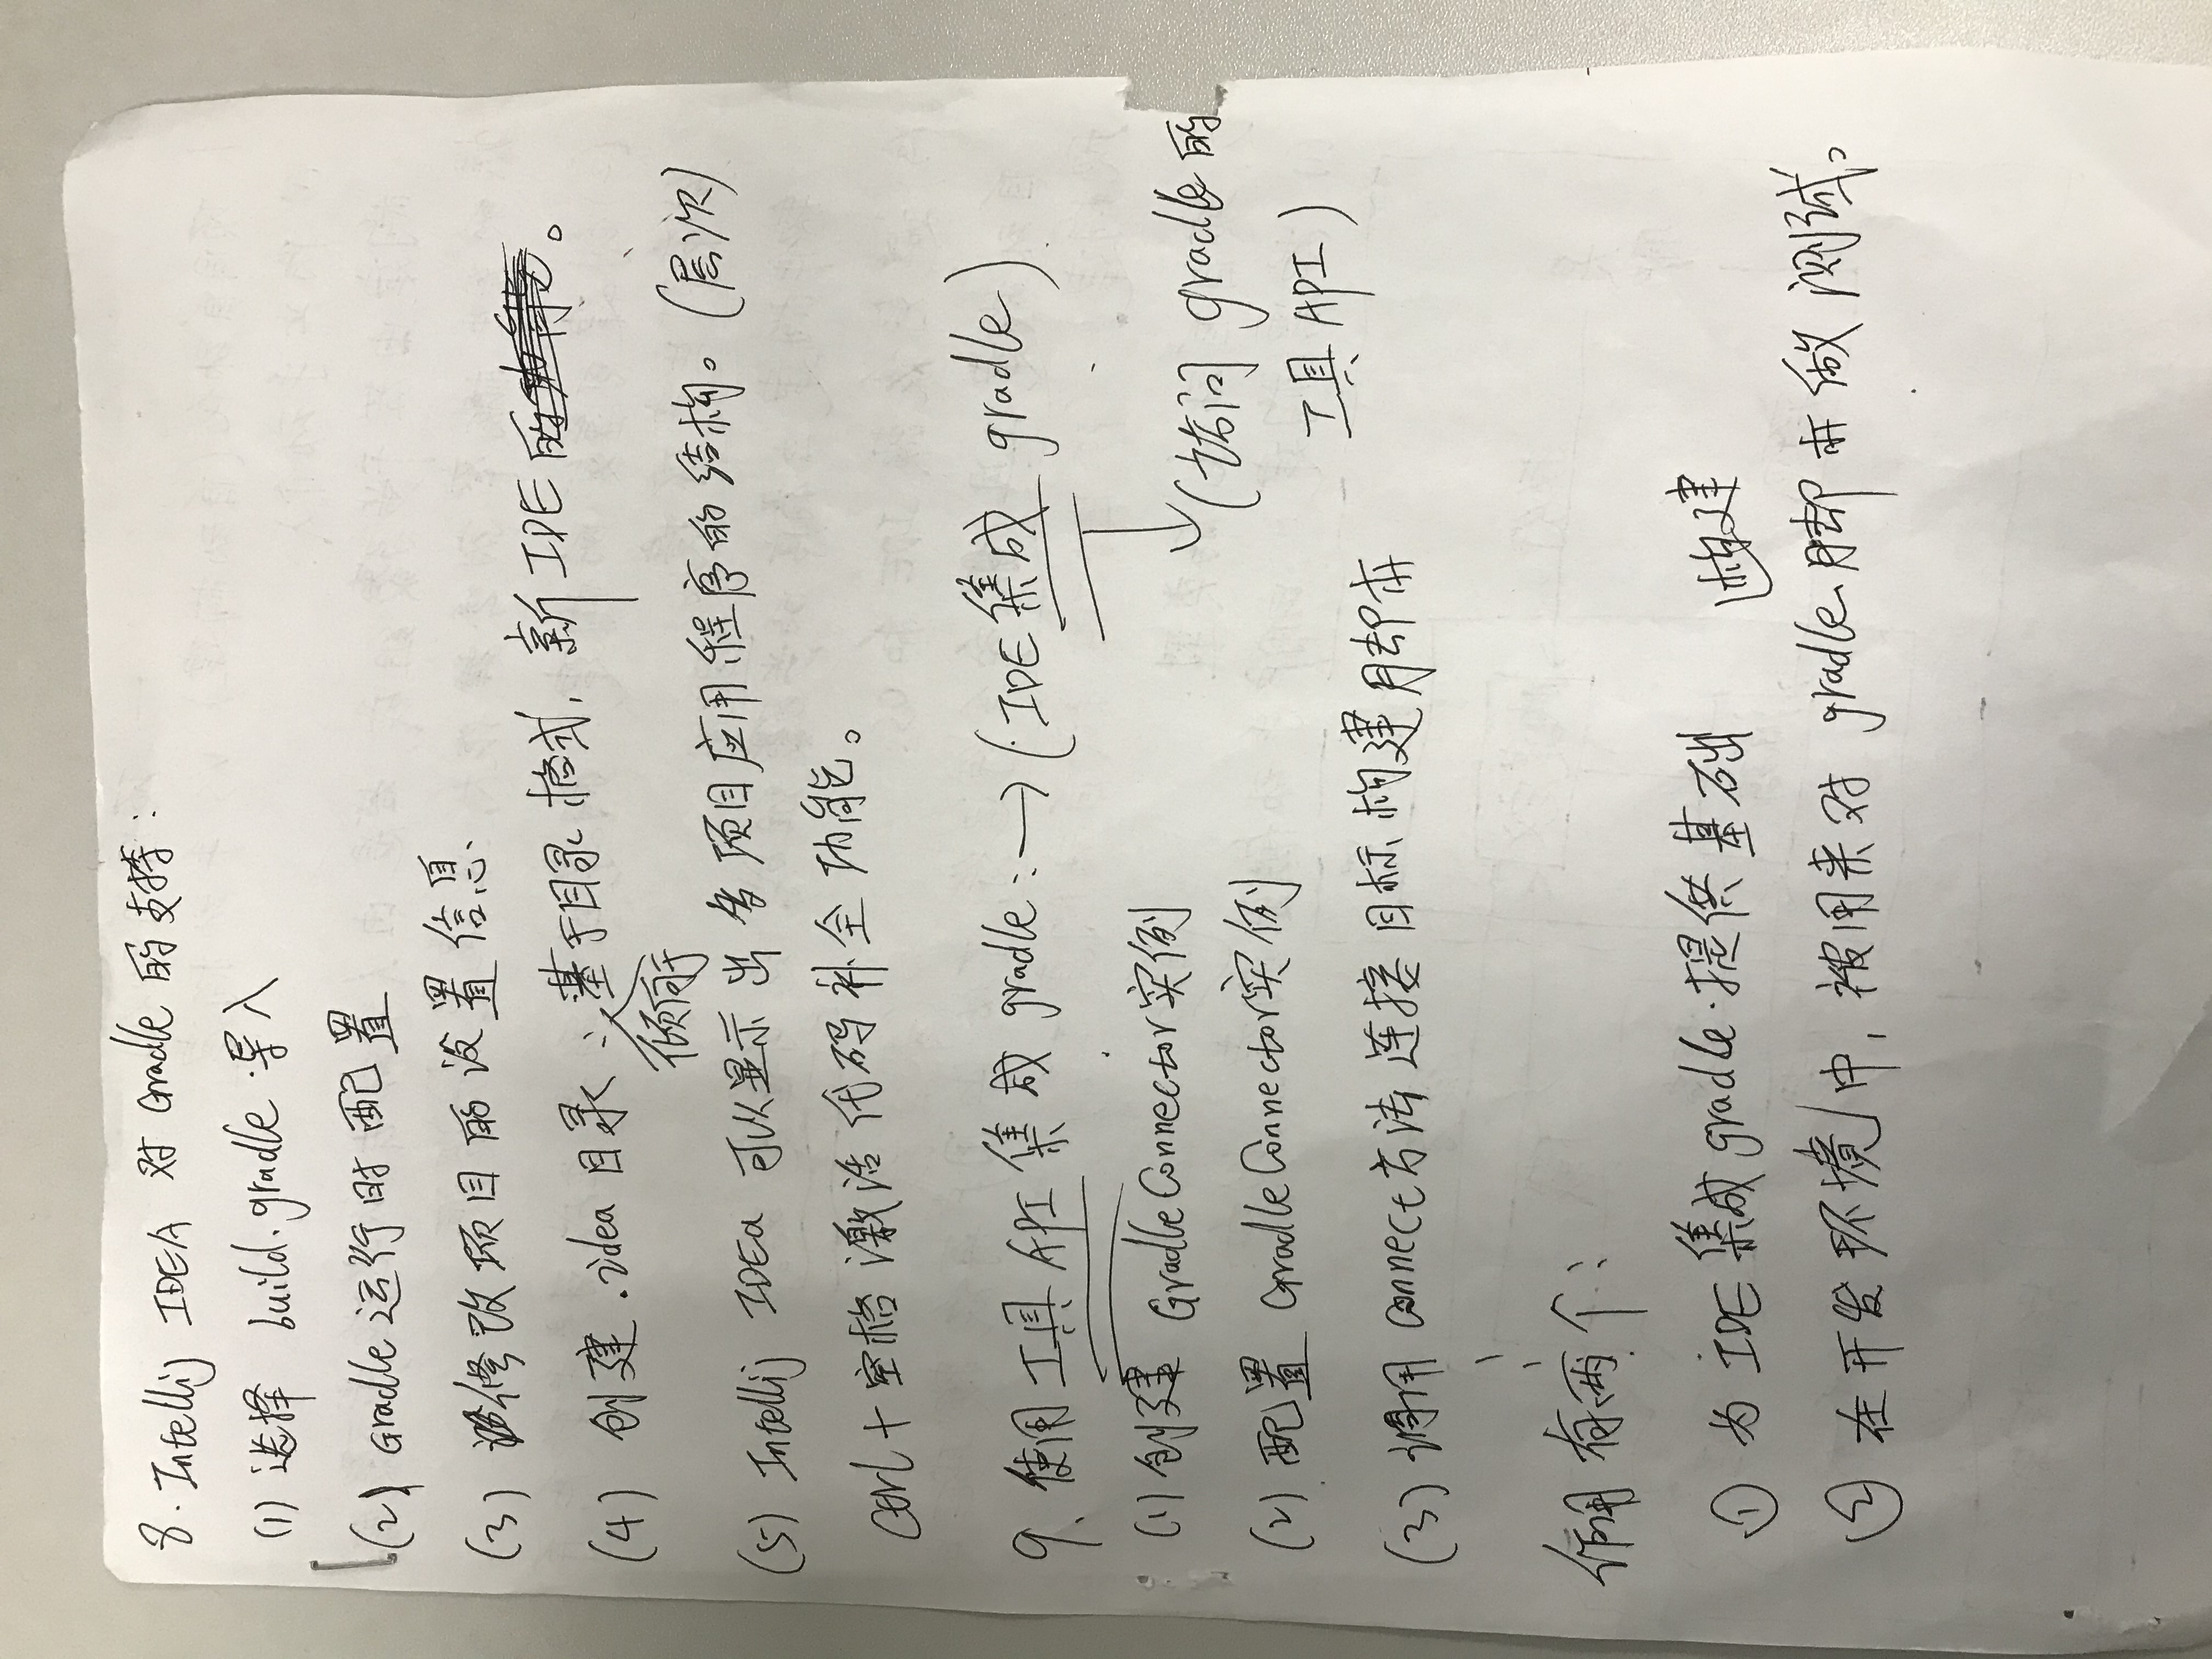 8. Intellij IDEA 对 Gradle 的支持:
(1) 选择 build.gradle 导入
(2) Gradle 运行时配置
(3) 修改项目的设置信息
(4) 创建 .idea 目录: 基于目录格式, 新IDE的。
倾向于
(5) Intellij IDEa 可以显示出多项目应用程序的结构。(层次)
Ctrl+空格 激活代码补全功能。
9、使用工具API集成 gradle: → (IDE集成 gradle)
(1) 创建 GradleConnector实例
(访问 gradle 的
(2) 配置 GradleConnector实例
工具API)
(3) 调用 connect方法 连接目标构建脚本
作用有两个:
① 为 IDE 集成 gradle 提供基础
构建
② 在开发环境中, 被用来对 gradle 脚本做测试。